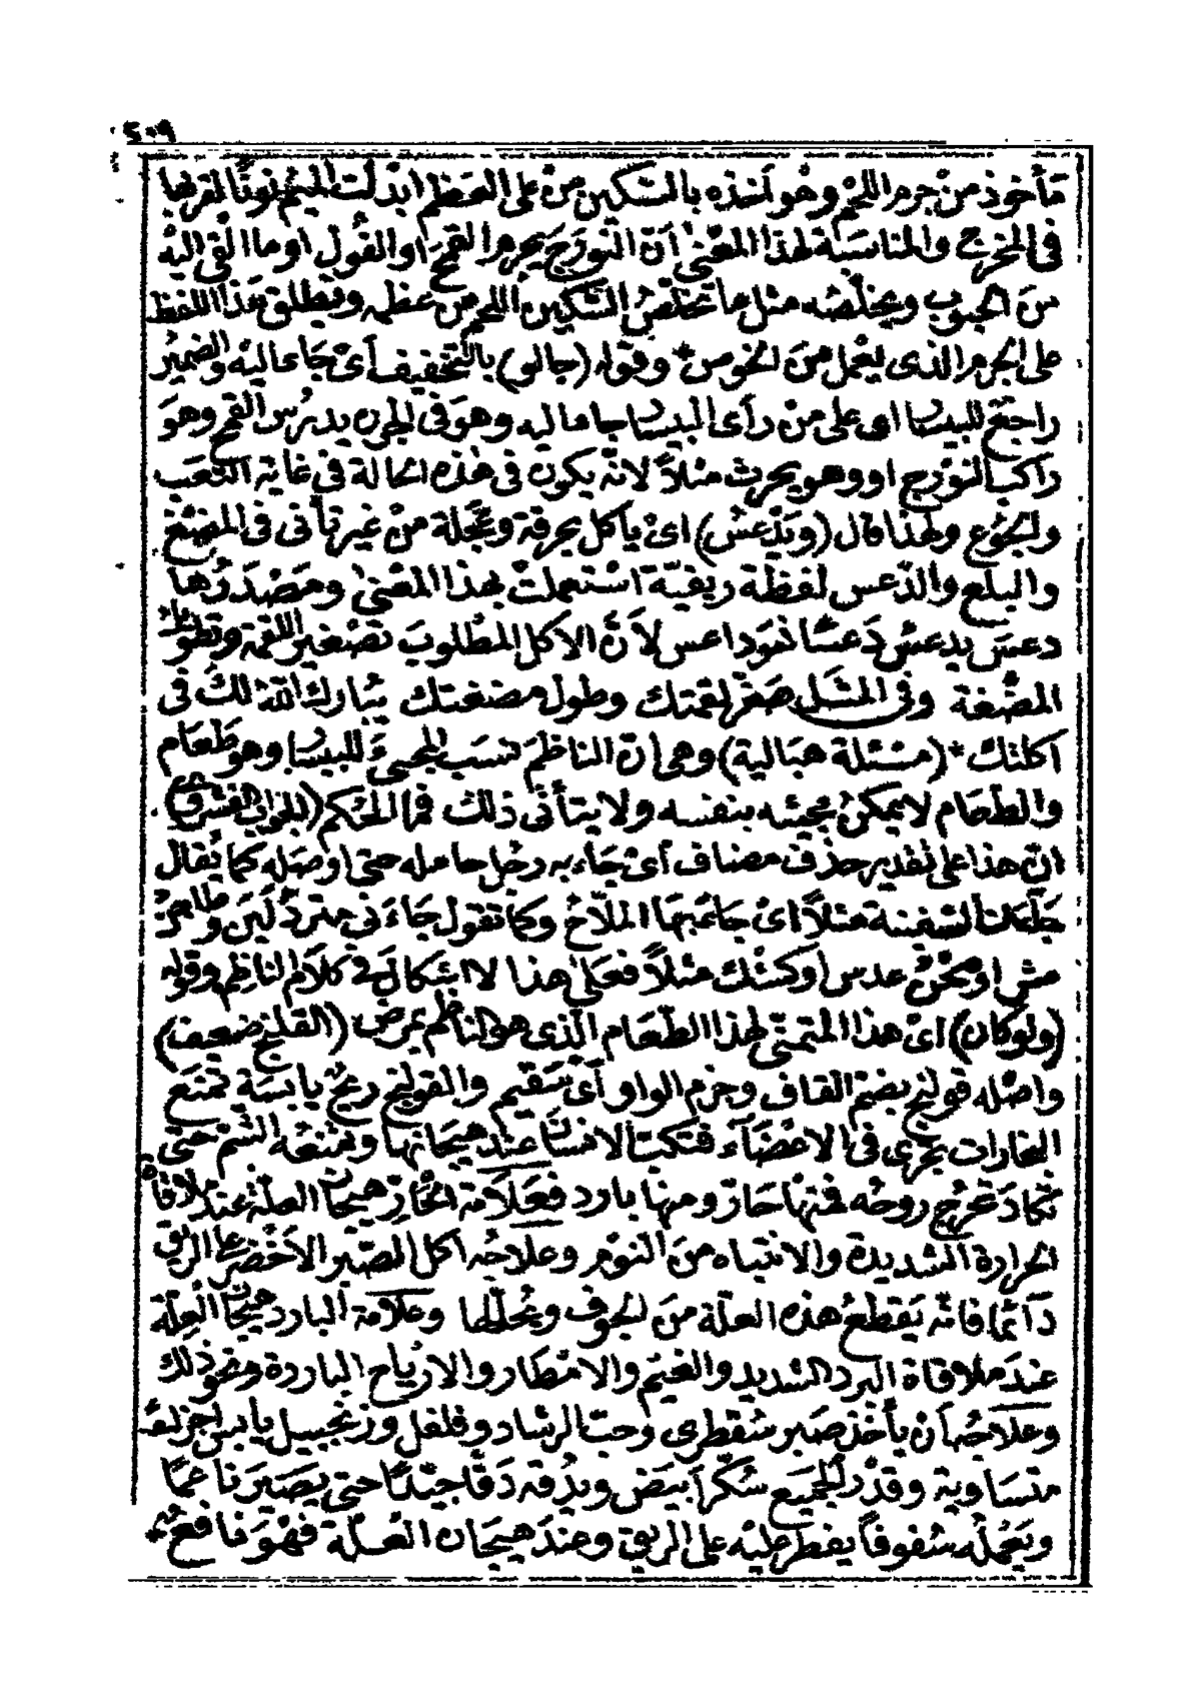 ٢٠٩
مأخوذ من جرم اللحم وهو أخذه بالسّكين من على العظم ابدلت الميم نونًا لقربها
فى المخرج والمناسبة لهذا المعنى أنّ النّورَج يجرم القمح او الفول او ما القى اليْه
من الحبوب ويخلّصه مثل ما تخلّصُ السّكين اللحم من عظمه ويطلق هذا اللفظ
على الجرم الذى يعمل من الخوص * وقوله (جالو) بالتخفيف أىْ جاءَ اليْه والضميرُ
راجعٌ للبيسار اى على من رأى البيسار جاء اليه وهوَ فى الجرن يدرُس القمح وهوَ
راكب النّورج او وهو يحرث مثلاً لانّه يكون فى هٰذه الحالة فى غاية التعب
والجُوع ولهذا قال (ويَدْعَسْ) اىْ يأكل بحرقة وعَجلة منْ غير تأنى فى المضغ
والبلع والدّعس لفظة ريفيّة استعملتْ بهذا المعْنى ومَصْدَرُها
دعسَ يدعسُ دَعسًا فهو داعس لأنّ الاكل المطلوبَ تصْغير اللقمة وتطويل
المضْغة وفى المثَل صَغّر لقمتك وطول مضغتك يُبارك اللهُ لكْ فى
اكلتك * (مسْئلة هبالية) وهى انّ الناظمَ نسَب المجيءَ للبيسار وهو طَعام
والطعام لا يمكنُ مجيئه بنفسه ولا يتأتى ذلك فما الحُكم (الجواب الفشروى)
انّ هذا على تقدير حذف مضاف أىْ جاءَ به رجُل حامله حتى اوصَله كما يُقال
جاءتنا السّفينة مثلاً اىْ جاءَ بها الملّاحُ وكما تقول جاءَنى متردُ لَبن وطاجنُ
مش او صحْنُ عدس او كشك مثلاً فعَلى هٰذا لا اشكال فى كلام الناظم وقوله
(ولو كان) اىْ هذا المتمنّى لهذا الطّعام الّذى هو الناظم بمرض (القلنج ضعيف)
واصْله قولنج بضم القاف وجزم الواو أىْ سَقيم والقولنج ريحٌ يابسَة تمنَع
البخارات تجرى فى الاعْضَآء فتكب الانسان عند هيجانها وتمنعُه الشم حتى
تكاد تخرج روحُه فمنها حارّ ومنها بارد فعَلامة الحارّ هيجان العلّة عند ملاقاة
الحرارة الشديدة والانتباه من النوم وعلاجُه اكل الصّبر الاخْضر على الريق
دَائما فانّه يَقطعُ هذه العلّة منَ الجوف ويُحلّلها وعلامة البارد هيجان العِلّة
عندَ ملاقاة البرد الشديد والغيْم والامْطار والارْياح الباردة ونحو ذلك
وعلاجُه أنْ يأخذ صَبر سُقطرى وحبّ الرشاد وفلفل وزنجبيل يابس اجزاءً
متساوية وقدْر الجميع سُكّر أبيَض ويدُقه دَقّا جيّدًا حتى يَصيرَ ناعمًا
ويَعْمله سُفوفاً يفطر عليْه على الريق وعندَ هيجان العلّة فهُوَ نافعٌ *